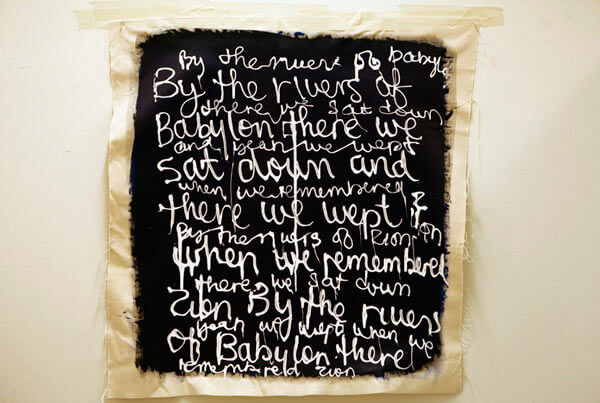 By the rivers of babylon
By the rivers of
there we sat down
Babylon there we
and yeah we wept
sat down and
when we remembered
there we wept
By the rivers of
when we remembered
there we sat down
zion By the rivers
yeah we wept when we
of Babylon there
remembered zion